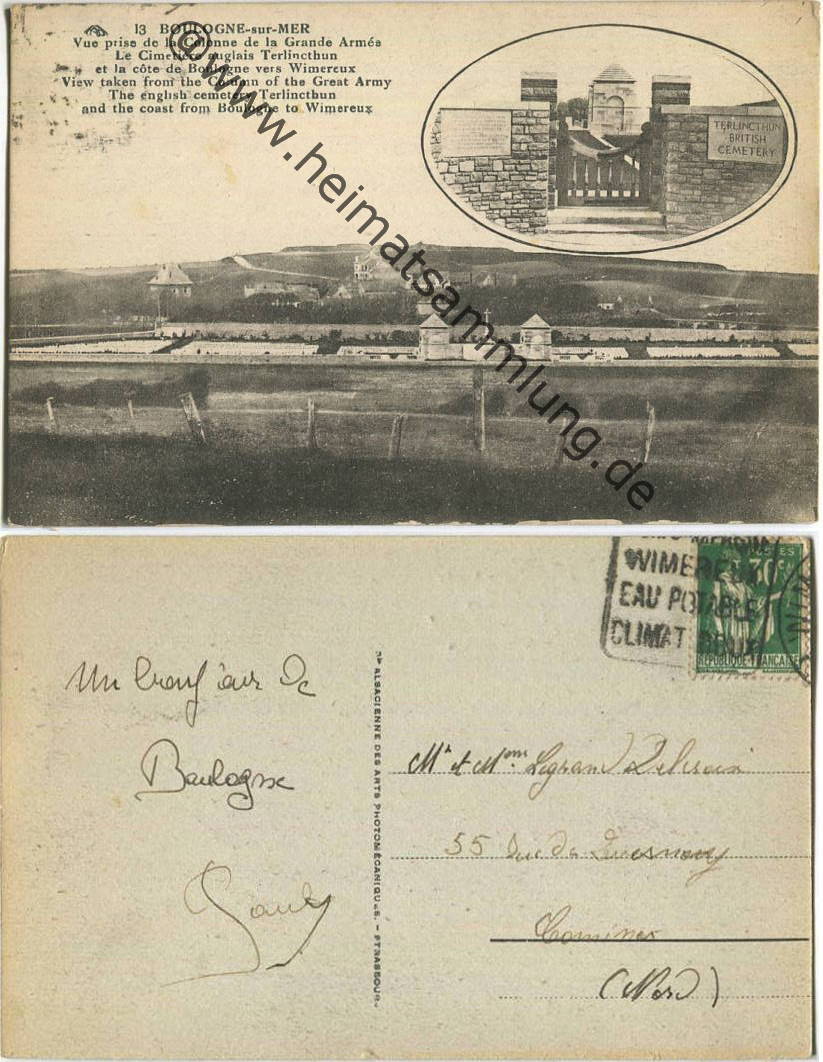 13 BOULOGNE-sur-MER
Vue prise de la Colonne de la Grande Armée
Le Cimetière anglais Terlincthun
et la côte de Boulogne vers Wimereux
View taken from the Column of the Great Army
The english cemetery Terlincthun
and the coast from Boulogne to Wimereux
TERLINCTHUN
BRITISH
CEMETERY
@www.heimatsammlung.de
WIMEREUX
EAU POTABLE
CLIMAT DOUX
POSTES
30 C
REPUBLIQUE FRANÇAISE
Un
Boulogne
ALSACIENNE DES ARTS PHOTOMÉCANIQUES. - STRASBOURG
Mr et Mme Legrand Delcroix
55 Rue de Quesnoy
Comines
(Nord)